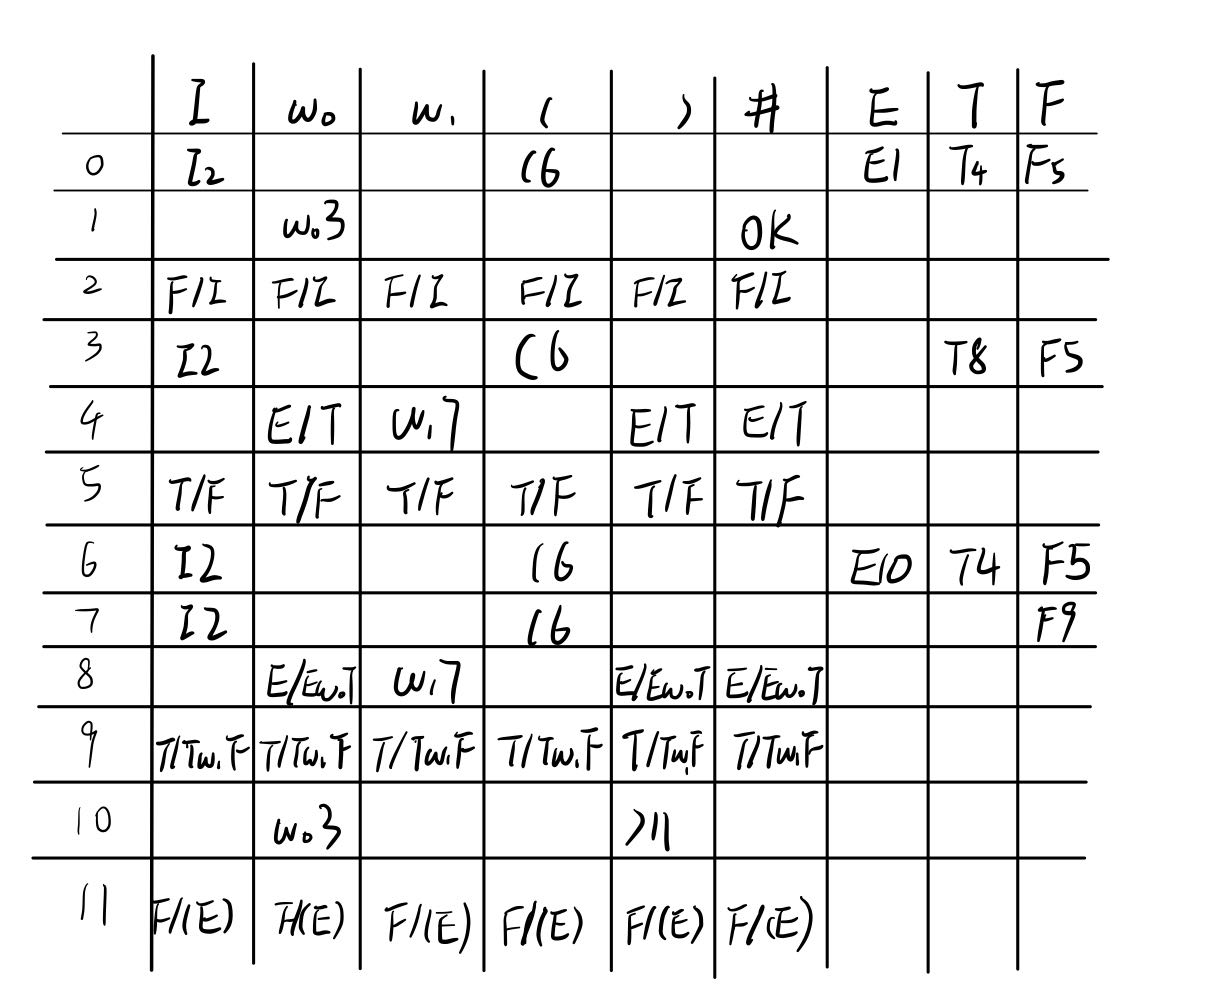 I w₀ w₁ ( ) # E T F
0 I2 (6 E1 T4 F5
1 w₀3 OK
2 F/I F/I F/I F/I F/I F/I
3 I2 (6 T8 F5
4 E/T w₁7 E/T E/T
5 T/F T/F T/F T/F T/F T/F
6 I2 (6 E10 T4 F5
7 I2 (6 F9
8 E/Ew₀T w₁7 E/Ew₀T E/Ew₀T
9 T/Tw₁F T/Tw₁F T/Tw₁F T/Tw₁F T/Tw₁F T/Tw₁F
10 w₀3 )11
11 F/(E) F/(E) F/(E) F/(E) F/(E) F/(E)